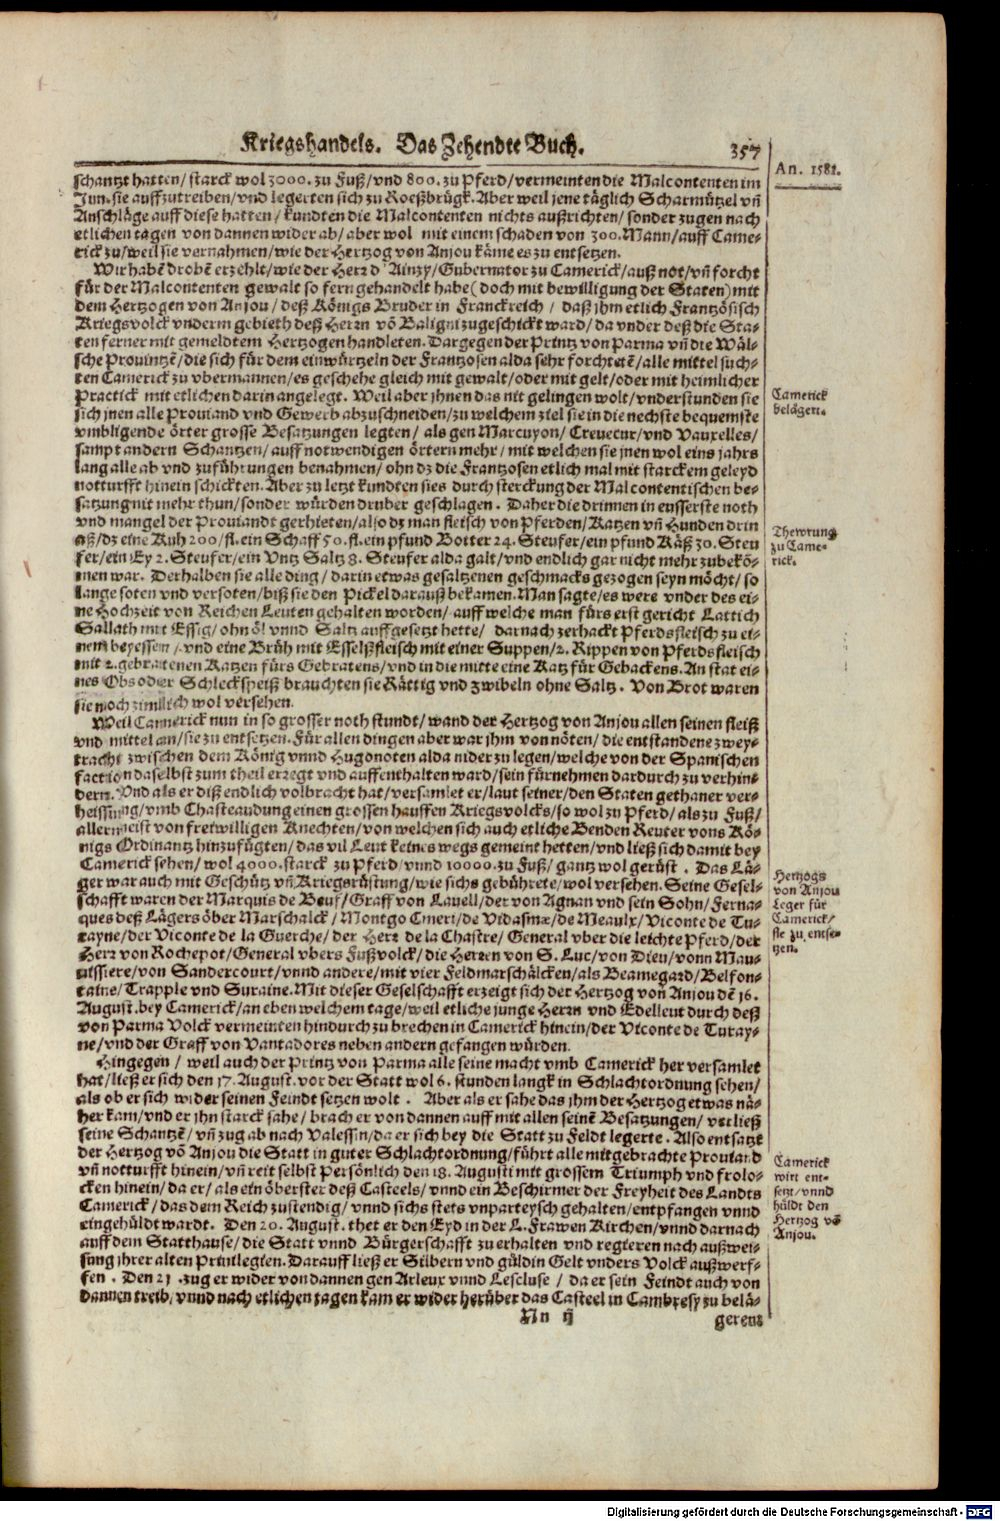 Kriegshandels. Das Zehendte Buch. 357
An. 1581.
schantzt hatten/ starck wol 3000. zu Fuß/vnd 800. zu Pferd/vermeinten die Malcontenten im
Jun. sie auffzutreiben/vnd legerten sich zu Roeßbrügk. Aber weil jene täglich Scharmützel vñ
Anschläge auff diese hatten/ kundten die Malcontenten nichts außrichten/ sonder zugen nach
etlichen tagen von dannen wider ab/ aber wol mit einem schaden von 300. Mann/auff Came-
rick zu/weil sie vernahmen/wie der Hertzog von Anjou käme es zu entsetzen.
Wir habẽ drobẽ erzehlt/wie der Herz d' Ainzy/Gubernator zu Camerick/auß not/vñ forcht
für der Malcontenten gewalt so fern gehandelt habe (doch mit bewilligung der Staten) mit
dem Hertzogen von Anjou/ deß Königs Bruder in Franckreich/ daß jhm etlich Frantzösisch
Kriegsvolck vnderm gebieth deß Herrn võ Baligni zugeschickt ward/da vnder deß die Sta-
ten ferner mit gemeldtem Hertzogen handleten. Dargegen der Printz von Parma vñ die Wäl-
sche Prouintzẽ/die sich für dem einwürtzeln der Frantzosen alda sehr forchtetẽ/alle mittel such-
ten Camerick zu vbermannen/es geschehe gleich mit gewalt/oder mit gelt/oder mit heimlicher
Practick mit etlichen darin angelegt. Weil aber jhnen das nit gelingen wolt/vnderstunden sie
sich jnen alle Prouiand vnd Gewerb abzuschneiden/zu welchem ziel sie in die nechste bequemste
vmbligende örter grosse Besatzungen legten/ als gen Marcuyon/ Creuecur/vnd Vauxelles/
sampt andern Schantzen/ auff notwendigen örtern mehr/ mit welchen sie jnen wol eins jahrs
lang alle ab vnd zuführungen benahmen/ ohn dz die Frantzosen etlich mal mit starckem geleyd
notturfft hinein schickten. Aber zu letzt kundten sies durch sterckung der Malcontentischen be-
satzung nit mehr thun/sonder würden drüber geschlagen. Daher die drinnen in eusserste noth
vnd mangel der Prouiandt gerhieten/also dz man fleisch von Pferden/Katzen vñ Hunden drin
aß/dz eine Kuh 200/fl. ein Schaff 50. fl. ein pfund Botter 24. Steufer/ein pfund Käß 30. Steu
fer/ein Ey 2. Steufer/ein Vntz Saltz 8. Steufer alda galt/vnd endlich gar nicht mehr zubekõ-
men war. Derhalben sie alle ding/ darin etwas gesaltzenen geschmacks gezogen seyn möcht/ so
lange soten vnd versoten/biß sie den Pickel darauß bekamen. Man sagte/es were vnder des ei-
ne Hochzeit von Reichen Leuten gehalten worden/ auff welche man fürs erst gericht Lattich
Sallath mit Essig/ ohn öl vnnd Saltz auffgesetzt hette/ darnach zerhackt Pferdsfleisch zu ei-
nem beyessen/ vnd eine Brüh mit Esselßfleisch mit einer Suppen/2. Rippen von Pferdsfleisch
mit 2. gebratenen Katzen fürs Gebratens/vnd in die mitte eine Katz für Gebackens. An stat ei-
nes Obs oder Schleckspeiß brauchten sie Rättig vnd zwibeln ohne Saltz. Von Brot waren
sie noch zimlich wol versehen.
Weil Camerick nun in so grosser noth stundt/ wand der Hertzog von Anjou allen seinen fleiß
vnd mittel an/sie zu entsetzen. Für allen dingen aber war jhm von nöten/ die entstandene zwey-
tracht zwischen dem König vnnd Hugonoten alda nider zu legen/welche von der Spanischen
faction daselbst zum theil erregt vnd auffenthalten ward/sein fürnehmen dardurch zu verhin-
dern. Vnd als er diß endlich volbracht hat/versamlet er/laut seiner/den Staten gethaner ver-
heissung/vmb Chasteaudung einen grossen hauffen Kriegsvolcks/so wol zu Pferd/als zu Fuß/
allermeist von freiwilligen Knechten/von welchen sich auch etliche Benden Reuter vons Kö-
nigs Ordinantz hinzufügten/das vil Leut keines wegs gemeint hetten/vnd ließ sich damit bey
Camerick sehen/wol 4000. starck zu Pferd/vnnd 10000. zu Fuß/ gantz wol gerüst. Das Lä-
ger war auch mit Geschütz vñ Kriegsrüstung/wie sichs gebührete/wol versehen. Seine Gesel-
schafft waren der Marquis de Beuf/Graff von Lauell/der von Agnan vnd sein Sohn/Ferna-
ques deß Lägers öber Marschalck/Montgo Cmeri/de Vidasmæ/de Meaulx/Viconte de Tu-
rayne/der Viconte de la Guerche/ der Herz de la Chastre/ General vber die leichte Pferd/der
Herz von Rochepot/General vbers Fußvolck/die Herzen von S. Luc/von Dieu/vonn Mau-
uissiere/von Sandercourt/vnnd andere/mit vier Feldmarschälcken/als Beamegard/Belfon-
taine/Trapple vnd Suraine. Mit dieser Geselschafft erzeigt sich der Hertzog von Anjou dẽ 16.
August. bey Camerick/an eben welchem tage/weil etliche junge Herrn vnd Edelleut durch deß
von Parma Volck vermeinten hindurch zu brechen in Camerick hinein/der Viconte de Turay-
ne/vnd der Graff von Vantadores neben andern gefangen würden.
Hingegen/ weil auch der Printz von Parma alle seine macht vmb Camerick her versamlet
hat/ließ er sich den 17. August. vor der Statt wol 6. stunden langk in Schlachtordnung sehen/
als ob er sich wider seinen Feindt setzen wolt. Aber als er sahe das jhm der Hertzog etwas nä-
her kam/vnd er jhn starck sahe/ brach er von dannen auff mit allen seinẽ Besatzungen/ verließ
seine Schantzẽ/ vñ zug ab nach Valessin/da er sich bey die Statt zu Feldt legerte. Also entsatzt
der Hertzog võ Anjou die Statt in guter Schlachtordnung/führt alle mitgebrachte Prouiand
vñ notturfft hinein/vñ reit selbst Persönlich den 18. Augusti mit grossem Triumph vnd frolo-
cken hinein/da er/als ein öberster deß Casteels/vnnd ein Beschirmer der Freyheit des Landts
Camerick/das dem Reich zustendig/vnnd sichs stets vnparteysch gehalten/entpfangen vnnd
eingehüldt wardt. Den 20. August. thet er den Eyd in der L. Frawen Kirchen/vnnd darnach
auff dem Statthause/die Statt vnnd Bürgerschafft zu erhalten vnd regieren nach außwei-
sung jhrer alten Priuilegien. Darauff ließ er Silbern vnd güldin Gelt vnders Volck außwerf-
fen. Den 21. zug er wider von dannen gen Arleux vnnd Lescluse/ da er sein Feindt auch von
dannen treib/vnnd nach etlichen tagen kam er wider herüber das Casteel in Cambresy zu belä-
Nn ij gerenz
Camerick
belägert.
Thewrung
zu Came-
rick.
Hertzogs
von Anjou
Leger für
Camerick/
sie zu entse-
tzen.
Camerick
wirt ent-
setzt/vnnd
hüldt den
Hertzog võ
Anjou.
Digitalisierung gefördert durch die Deutsche Forschungsgemeinschaft - DFG